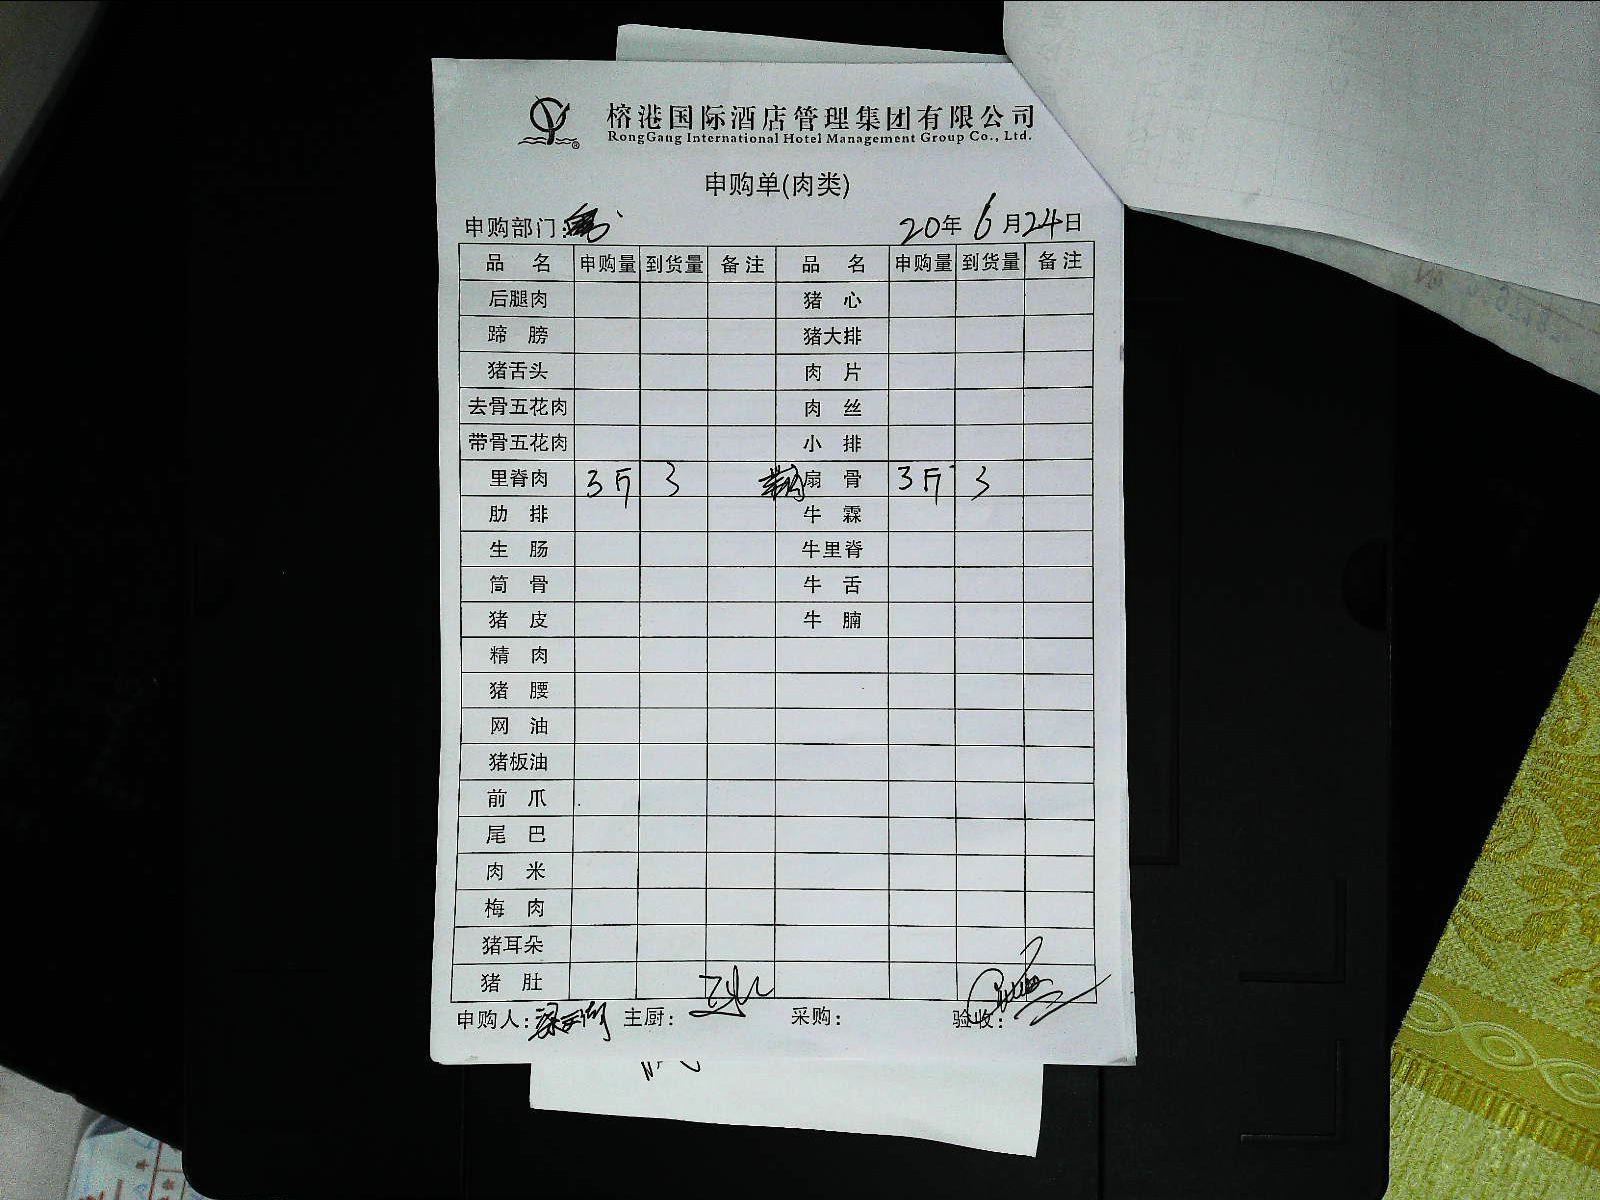 榕港国际酒店管理集团有限公司
RongGang International Hotel Management Group Co., Ltd.
申购单(肉类)
申购部门: 20年6月24日
品 名 申购量 到货量 备注 品 名 申购量 到货量 备注
后腿肉 猪 心
蹄 膀 猪大排
猪舌头 肉 片
去骨五花肉 肉 丝
带骨五花肉 小 排
里脊肉 3斤 3 扇 骨 3斤 3
肋 排 牛 霖
生 肠 牛里脊
筒 骨 牛 舌
猪 皮 牛 腩
精 肉
猪 腰
网 油
猪板油
前 爪
尾 巴
肉 米
梅 肉
猪耳朵
猪 肚
申购人: 主厨: 采购: 验收: